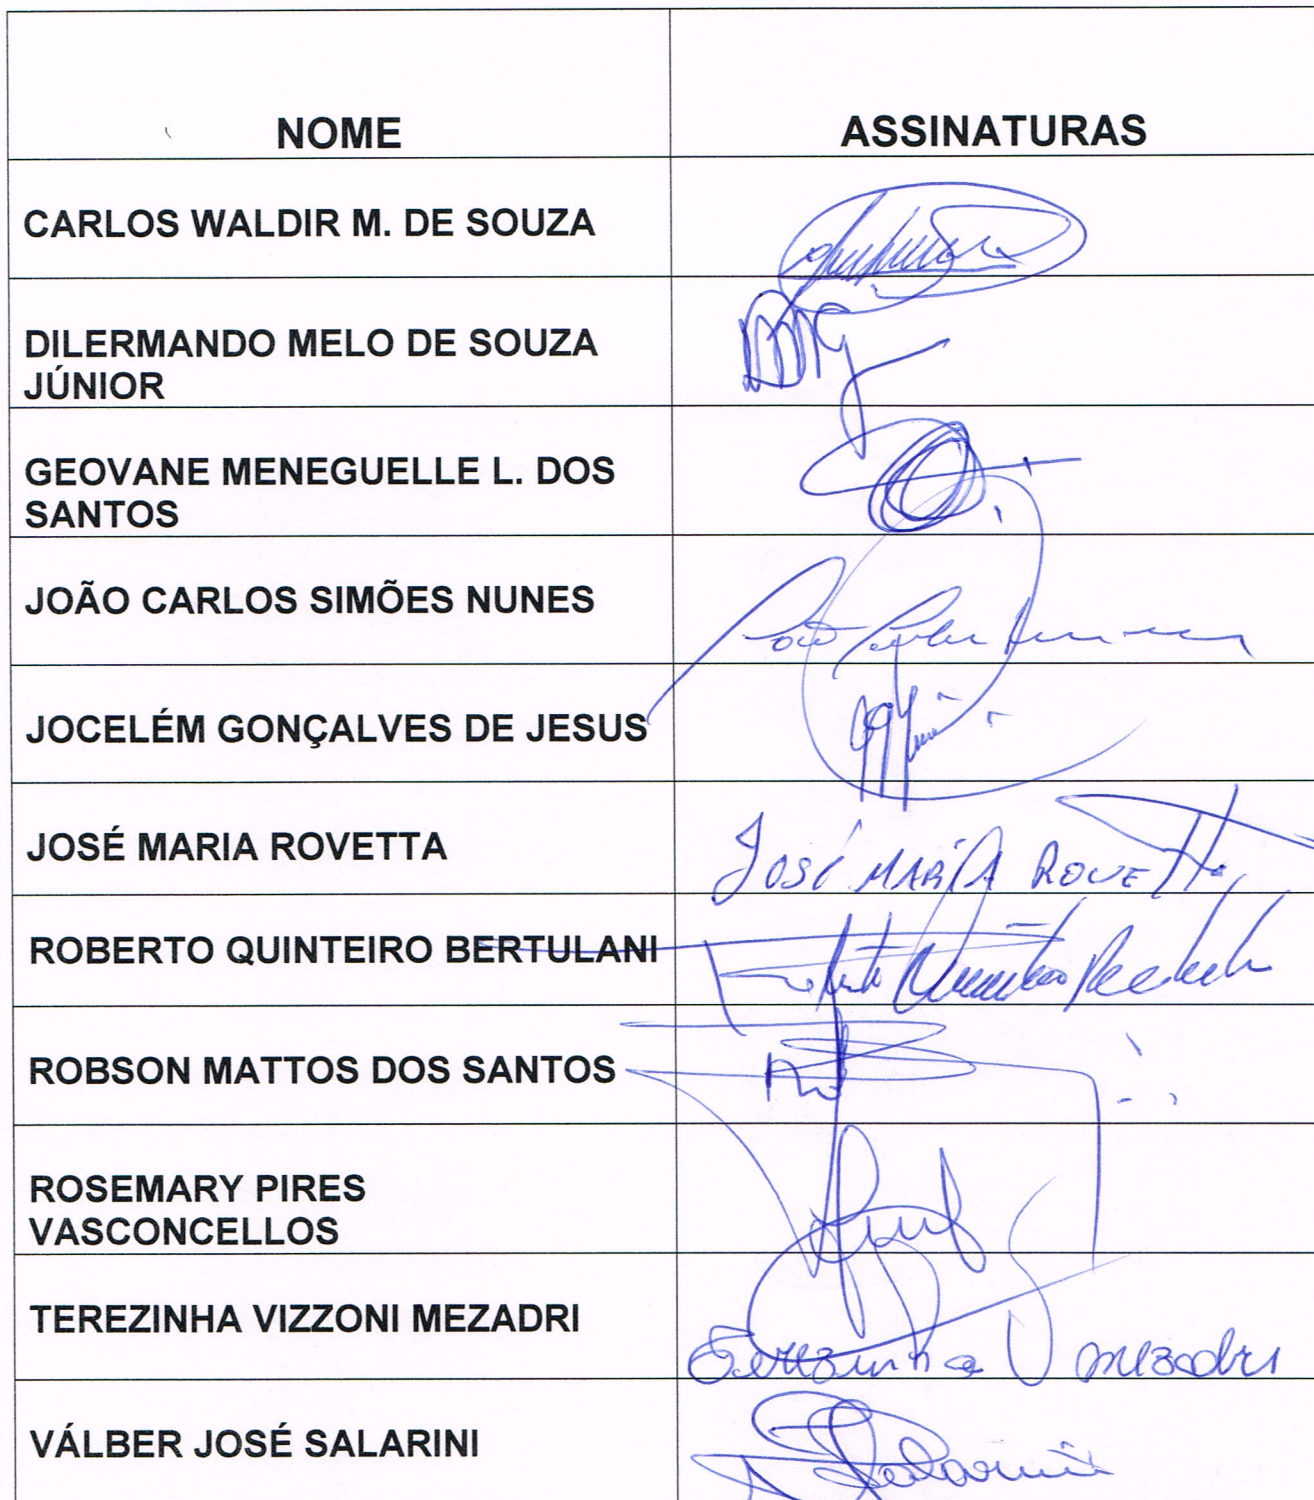 NOME
ASSINATURAS
CARLOS WALDIR M. DE SOUZA
DILERMANDO MELO DE SOUZA
JÚNIOR
GEOVANE MENEGUELLE L. DOS
SANTOS
JOÃO CARLOS SIMÕES NUNES
JOCELÉM GONÇALVES DE JESUS
JOSÉ MARIA ROVETTA
JOSÉ MARIA ROVETTA
ROBERTO QUINTEIRO BERTULANI
ROBSON MATTOS DOS SANTOS
ROSEMARY PIRES
VASCONCELLOS
TEREZINHA VIZZONI MEZADRI
Terezinha V mezadri
VÁLBER JOSÉ SALARINI
Salarini